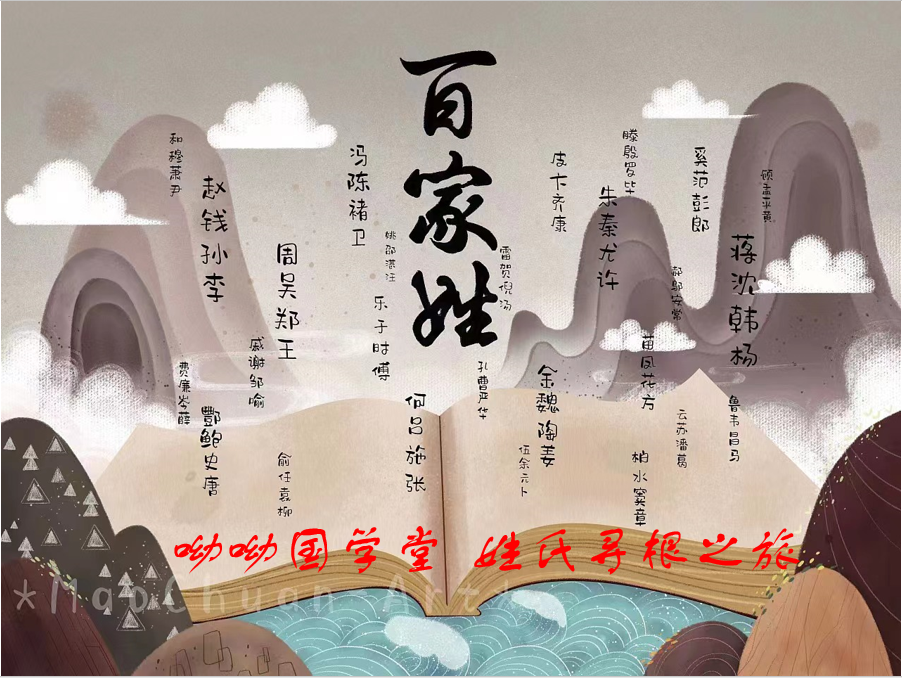 百家姓
和穆萧尹
赵钱孙李
周吴郑王
冯陈褚卫
姚邵湛汪
乐于时傅
戚谢邹喻
费廉岑薛
酆鲍史唐
俞任袁柳
何吕施张
皮卞齐康
滕殷罗毕
朱秦尤许
奚范彭郎
顾孟平黄
蒋沈韩杨
雷贺倪汤
郝邬安常
苗凤花方
孔曹严华
金魏陶姜
伍余元卜
柏水窦章
云苏潘葛
鲁韦昌马
呦呦国学堂 姓氏寻根之旅
*MaoChuan-Art*